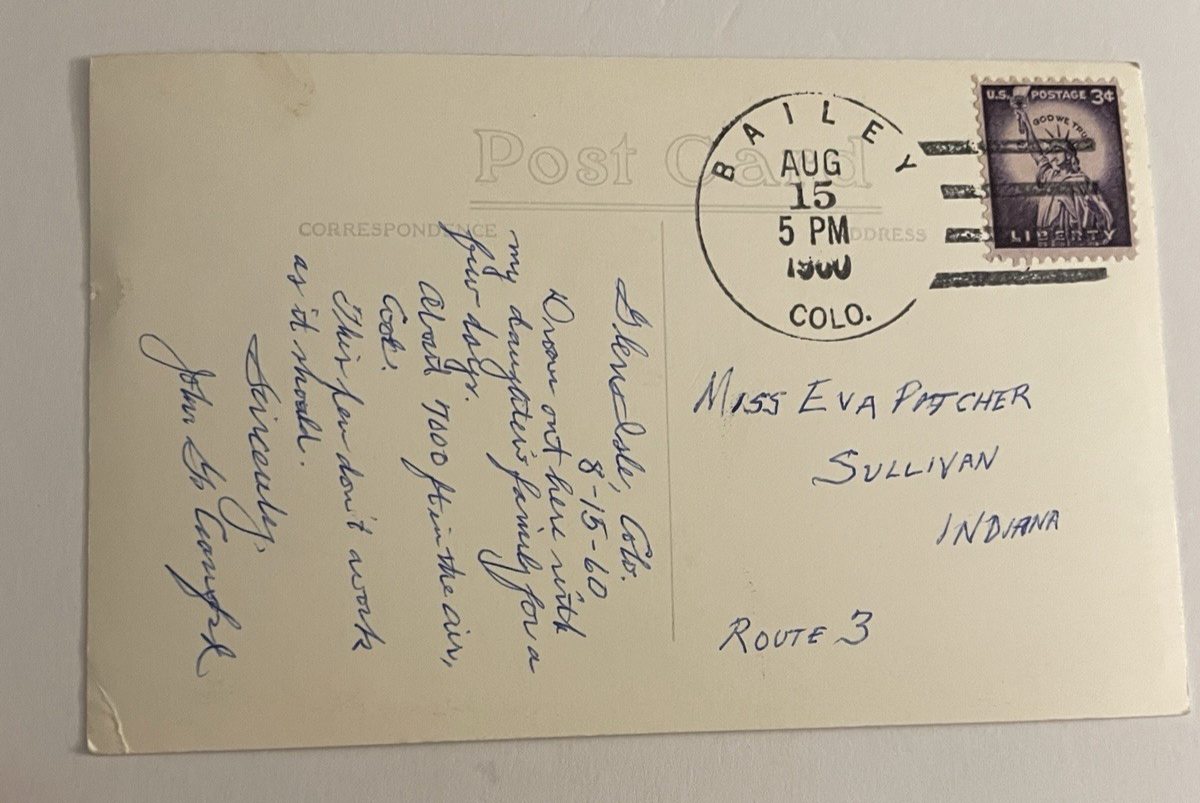 Post Card
CORRESPONDENCE
ADDRESS
BAILEY
AUG
15
5 PM
1960
COLO.
U.S. POSTAGE 3¢
IN GOD WE TRUST
LIBERTY
Glen Isle, Colo.
8-15-60
Drove out here with
my daughter's family for a
few days.
About 7000 ft in the air,
Cool.
This pen don't work
as it should.
Sincerely,
John
MISS EVA PATCHER
SULLIVAN
INDIANA
ROUTE 3